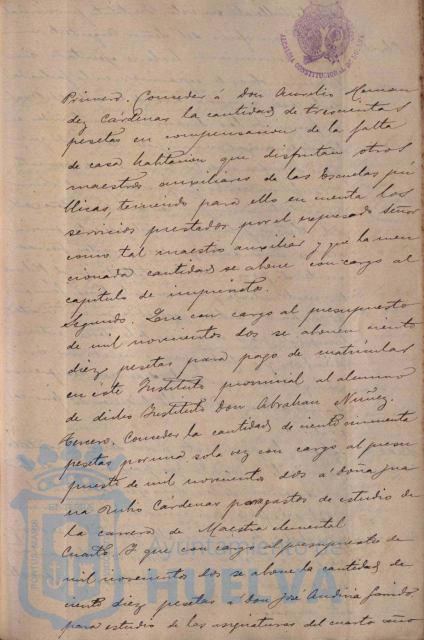 ALCALDIA CONSTITUCIONAL DE HUELVA
Primero. Conceder á Don Aurelio Hernan
dez Cárdenas la cantidad de trescientas
pesetas en compensacion de la falta
de casa habitacion que disfrutan otros
maestros auxiliares de las Escuelas pú
blicas, teniendo para ello en cuenta los
servicios prestados por el expresado Señor
como tal maestro auxiliar y que la men
cionada cantidad se abone con cargo al
capítulo de imprevistos.
Segundo. Que con cargo al presupuesto
de mil novecientos dos se abonen ciento
diez pesetas para pago de matrículas
en este Instituto provincial al alumno
de dicho Instituto Don Abrahan Nuñez.
Tercero. Conceder la cantidad de ciento cincuenta
pesetas por una sola vez con cargo al presu
puesto de mil novecientos dos á doña Jua
na Cárdenas para gastos de estudio de
la carrera de Maestra elemental
Cuarto. Y que con cargo al presupuesto de
mil novecientos dos se abone la cantidad de
ciento diez pesetas á don José
para estudio de las asignaturas del cuarto año
PORTUS MARIS
Ayuntamiento de
HUELVA